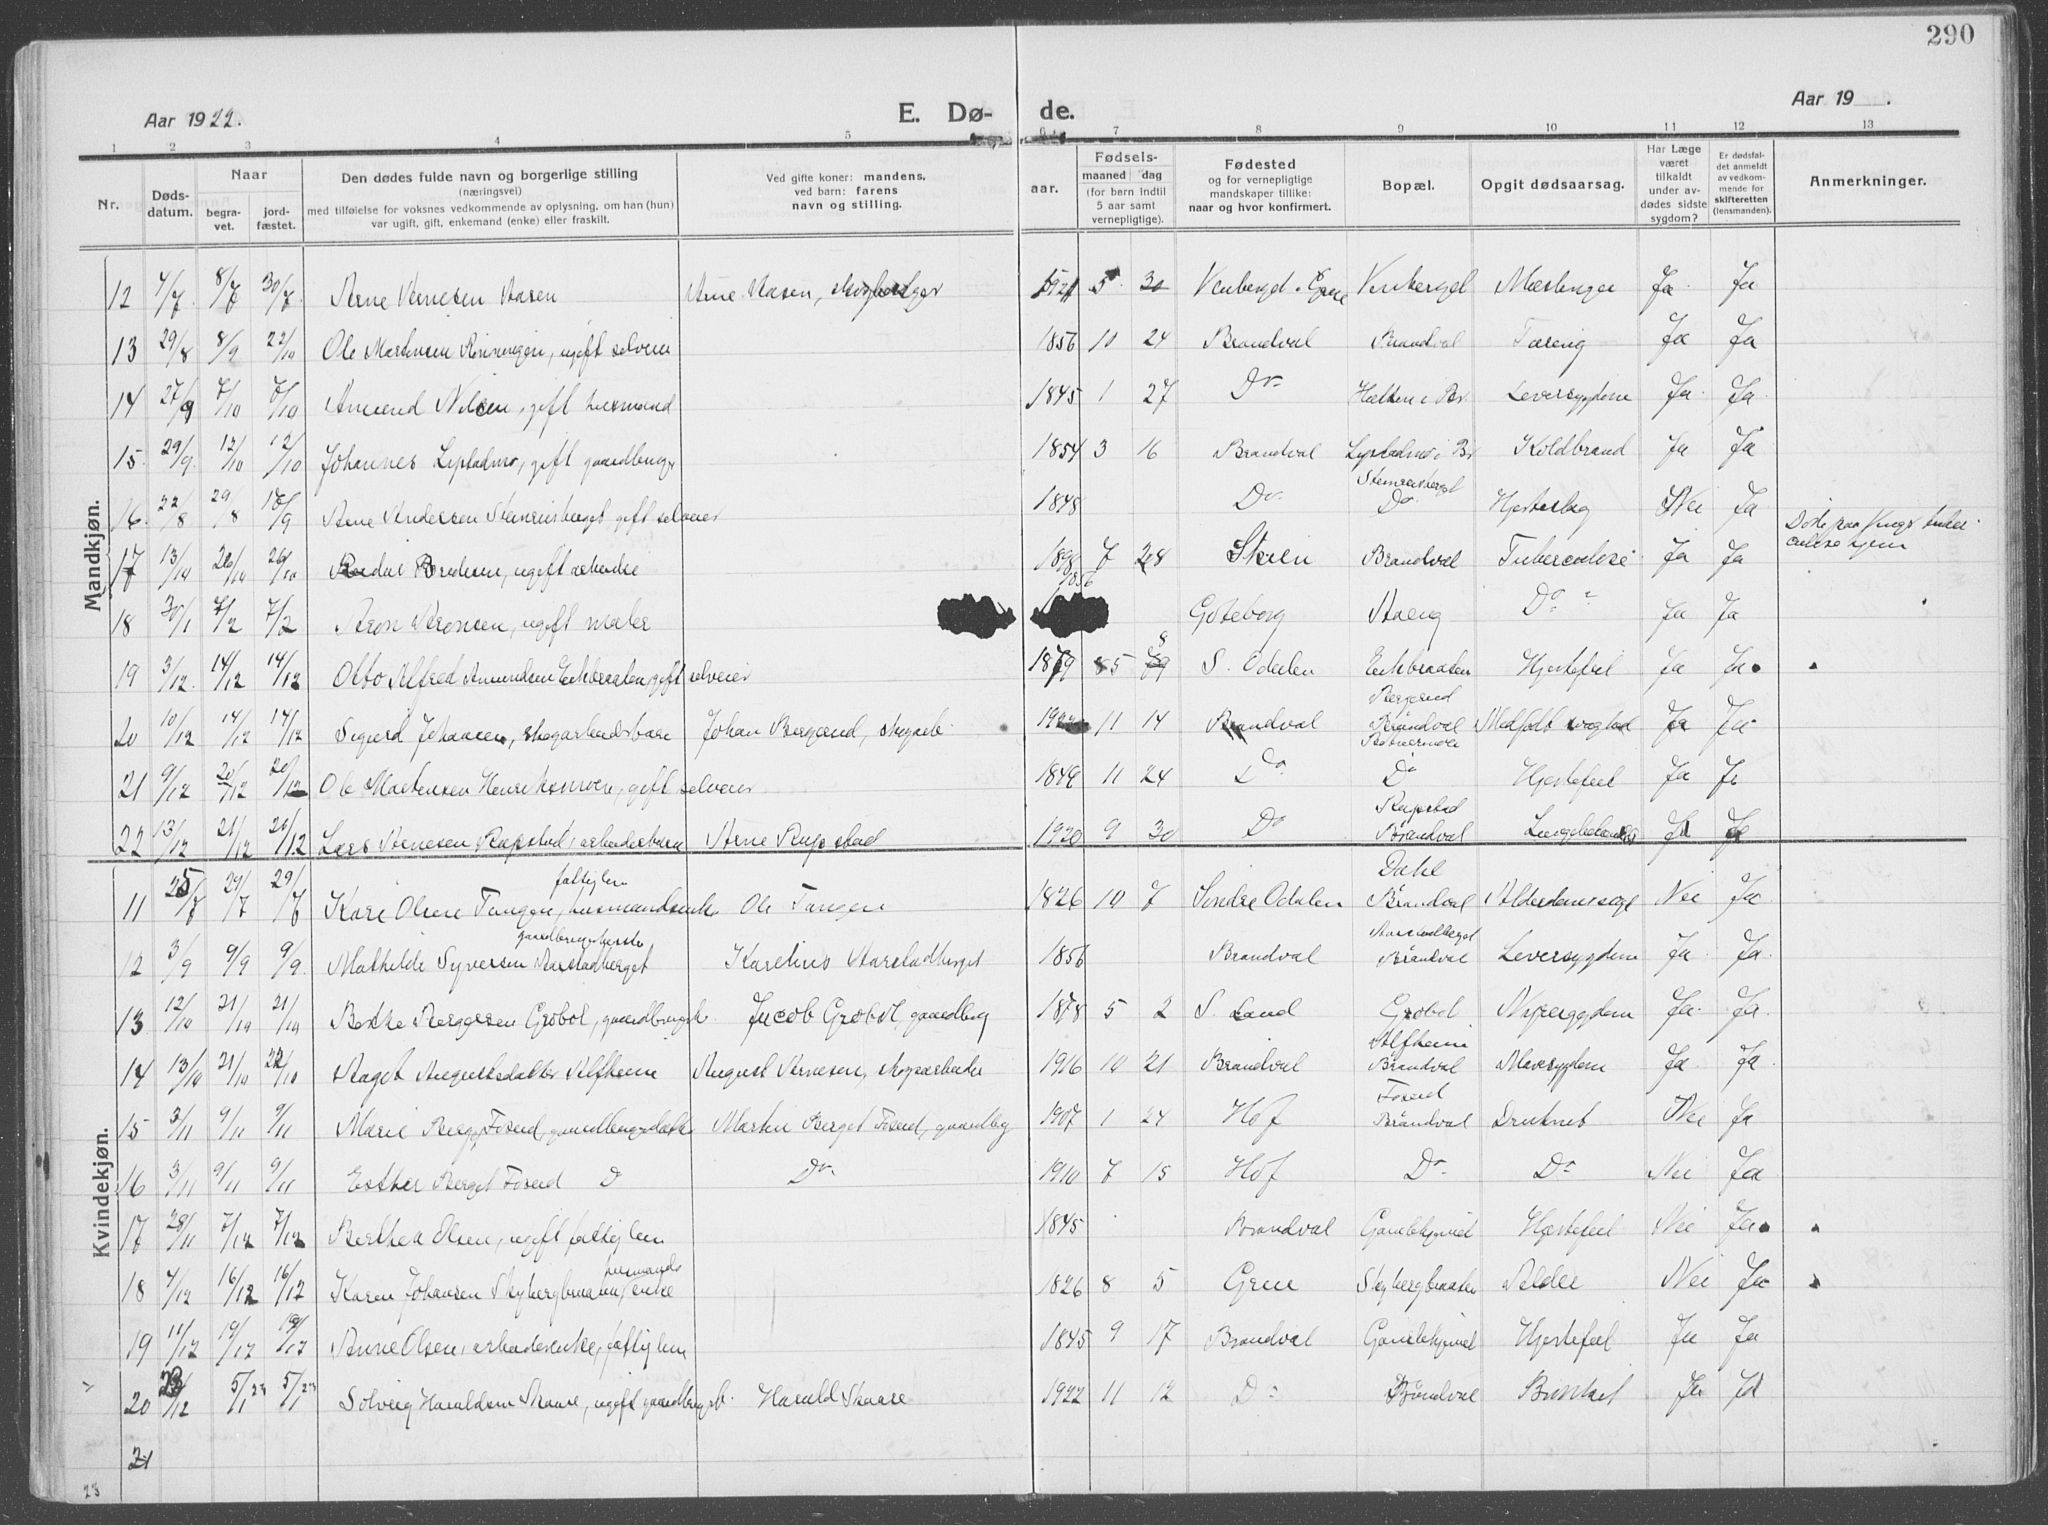 290
Aar 1922.
E. Dø- de.
Aar 19 .
1 2 3 4 5 6 7 8 9 10 11 12 13
Nr.
Døds-datum.
Naar
begra-vet.
jord-fæstet.
Den dødes fulde navn og borgerlige stilling
(næringsvei)
med tilføielse for voksnes vedkommende av oplysning, om han (hun)
var ugift, gift, enkemand (enke) eller fraskilt.
Ved gifte koner: mandens.
ved barn: farens
navn og stilling.
aar.
Fødsels-
maaned dag
(for børn indtil
5 aar samt
vernepligtige).
Fødested
og for vernepligtige
mandskaper tillike:
naar og hvor konfirmert.
Bopæl.
Opgit dødsaarsag.
Har Læge
været
tilkaldt
under av-
dødes sidste
sygdom?
Er dødsfal-
det anmeldt
av vedkom-
mende for
skifteretten
(lensmanden).
Anmerkninger.
Mandkjøn.
12 4/7 8/7 30/7 Arne Arnesen Aasen Arne Aasen, 1921 5 30 Ja Ja
13 29/8 8/9 22/10 Ole Martinsen Rønningen, ugift selveier 1856 10 24 Brandval Brandval Tæring Ja Ja
14 27/9 7/10 7/10 Amund Nilsen, gift husmand 1845 1 27 Do Leversygdom Ja Ja
15 29/9 12/10 12/10 Johannes Lystadmo, gift gaardbruger 1854 3 16 Brandval Lystadmo i Br Koldbrand Ja Ja
16 22/8 29/8 10/9 Arne Andersen gift selveier 1848 Do Do Hjerteslag Nei Ja
17 13/10 20/10 20/10 ugift arbeider 1898 7 28 Skien Brandval Tuberculose Ja Ja Døde paa Vinger tuber-
culosehjem
18 30/1 7/2 7/2 Aron Aronsen, ugift maler 1856 Gøteborg Do Ja Ja
19 3/12 14/12 14/12 Otto Alfred Amundsen gift selveier 1879 5 S. Odalen Hjertefeil Ja Ja
20 10/12 14/12 14/12 Sigurd Johansen, skogarbeidsbarn Johan Bergerud, skogarb. 1922 11 14 Brandval Bergerud Brandval Medfødt svaghed Ja Ja
21 9/12 20/12 20/12 Ole Martensen Henriksmoen, gift selveier 1848 11 24 Do Do Hjertefeil Ja Ja
22 13/12 21/12 21/12 Lars Arnesen Rugstad, arbeidersbarn Arne Rugstad 1920 9 30 Do Rugstad Brandval Ja Ja
Kvindekjøn.
11 25/7 29/7 29/7 Kari Olsen Tangen, fattiglem husmandsenke Ole Tangen 1826 10 7 Søndre Odalen Dahl Brandval Alderdomssvagh Nei Ja
12 3/9 9/9 9/9 Mathilde Syversen Aarstadberget Karelius Aarstadberget 1856 Brandval Aarstadberget Brandval Leversygdom Ja Ja
13 12/10 21/10 21/10 Grøbøl, Jacob Grøbøl, gaardbrug 1878 5 2 S. Land Grøbøl Nyresygdom Ja Ja
14 13/10 21/10 21/10 Aagot Augustsdatter Alfheim August Arnesen, skogsarbeider 1916 10 21 Brandval Alfheim Brandval Mavesygdom Ja Ja
15 3/11 9/11 9/11 Marie Berget Fosrud, gaardbrugsdatter Martin Berget Fosrud, gaardbrug 1907 1 24 Hof Fosrud Brandval Druknet Nei Ja
16 3/11 9/11 9/11 Esther Berget Fosrud D Do 1910 7 15 Hof Do Do Nei Ja
17 28/11 7/12 7/12 Berthea Olsen, ugift fattiglem 1845 Brandval Gamlehjemmet Hjertefeil Nei Ja
18 4/12 16/12 16/12 Karen Johansen husmands enke 1826 8 5 Grue Skybergbraaten Alder Nei Ja
19 11/12 19/12 19/12 Anne Olsen, arbeiderenke, fattiglem 1845 9 17 Brandval Gamlehjemmet Hjertefeil Ja Ja
20 28/12 5/1 23 5/1 23 Solveig Haraldsen Skaare, ugift gaardbrugsb. Harald Skaare 1922 11 12 Do Brandval Bronkit Ja Ja
21
23